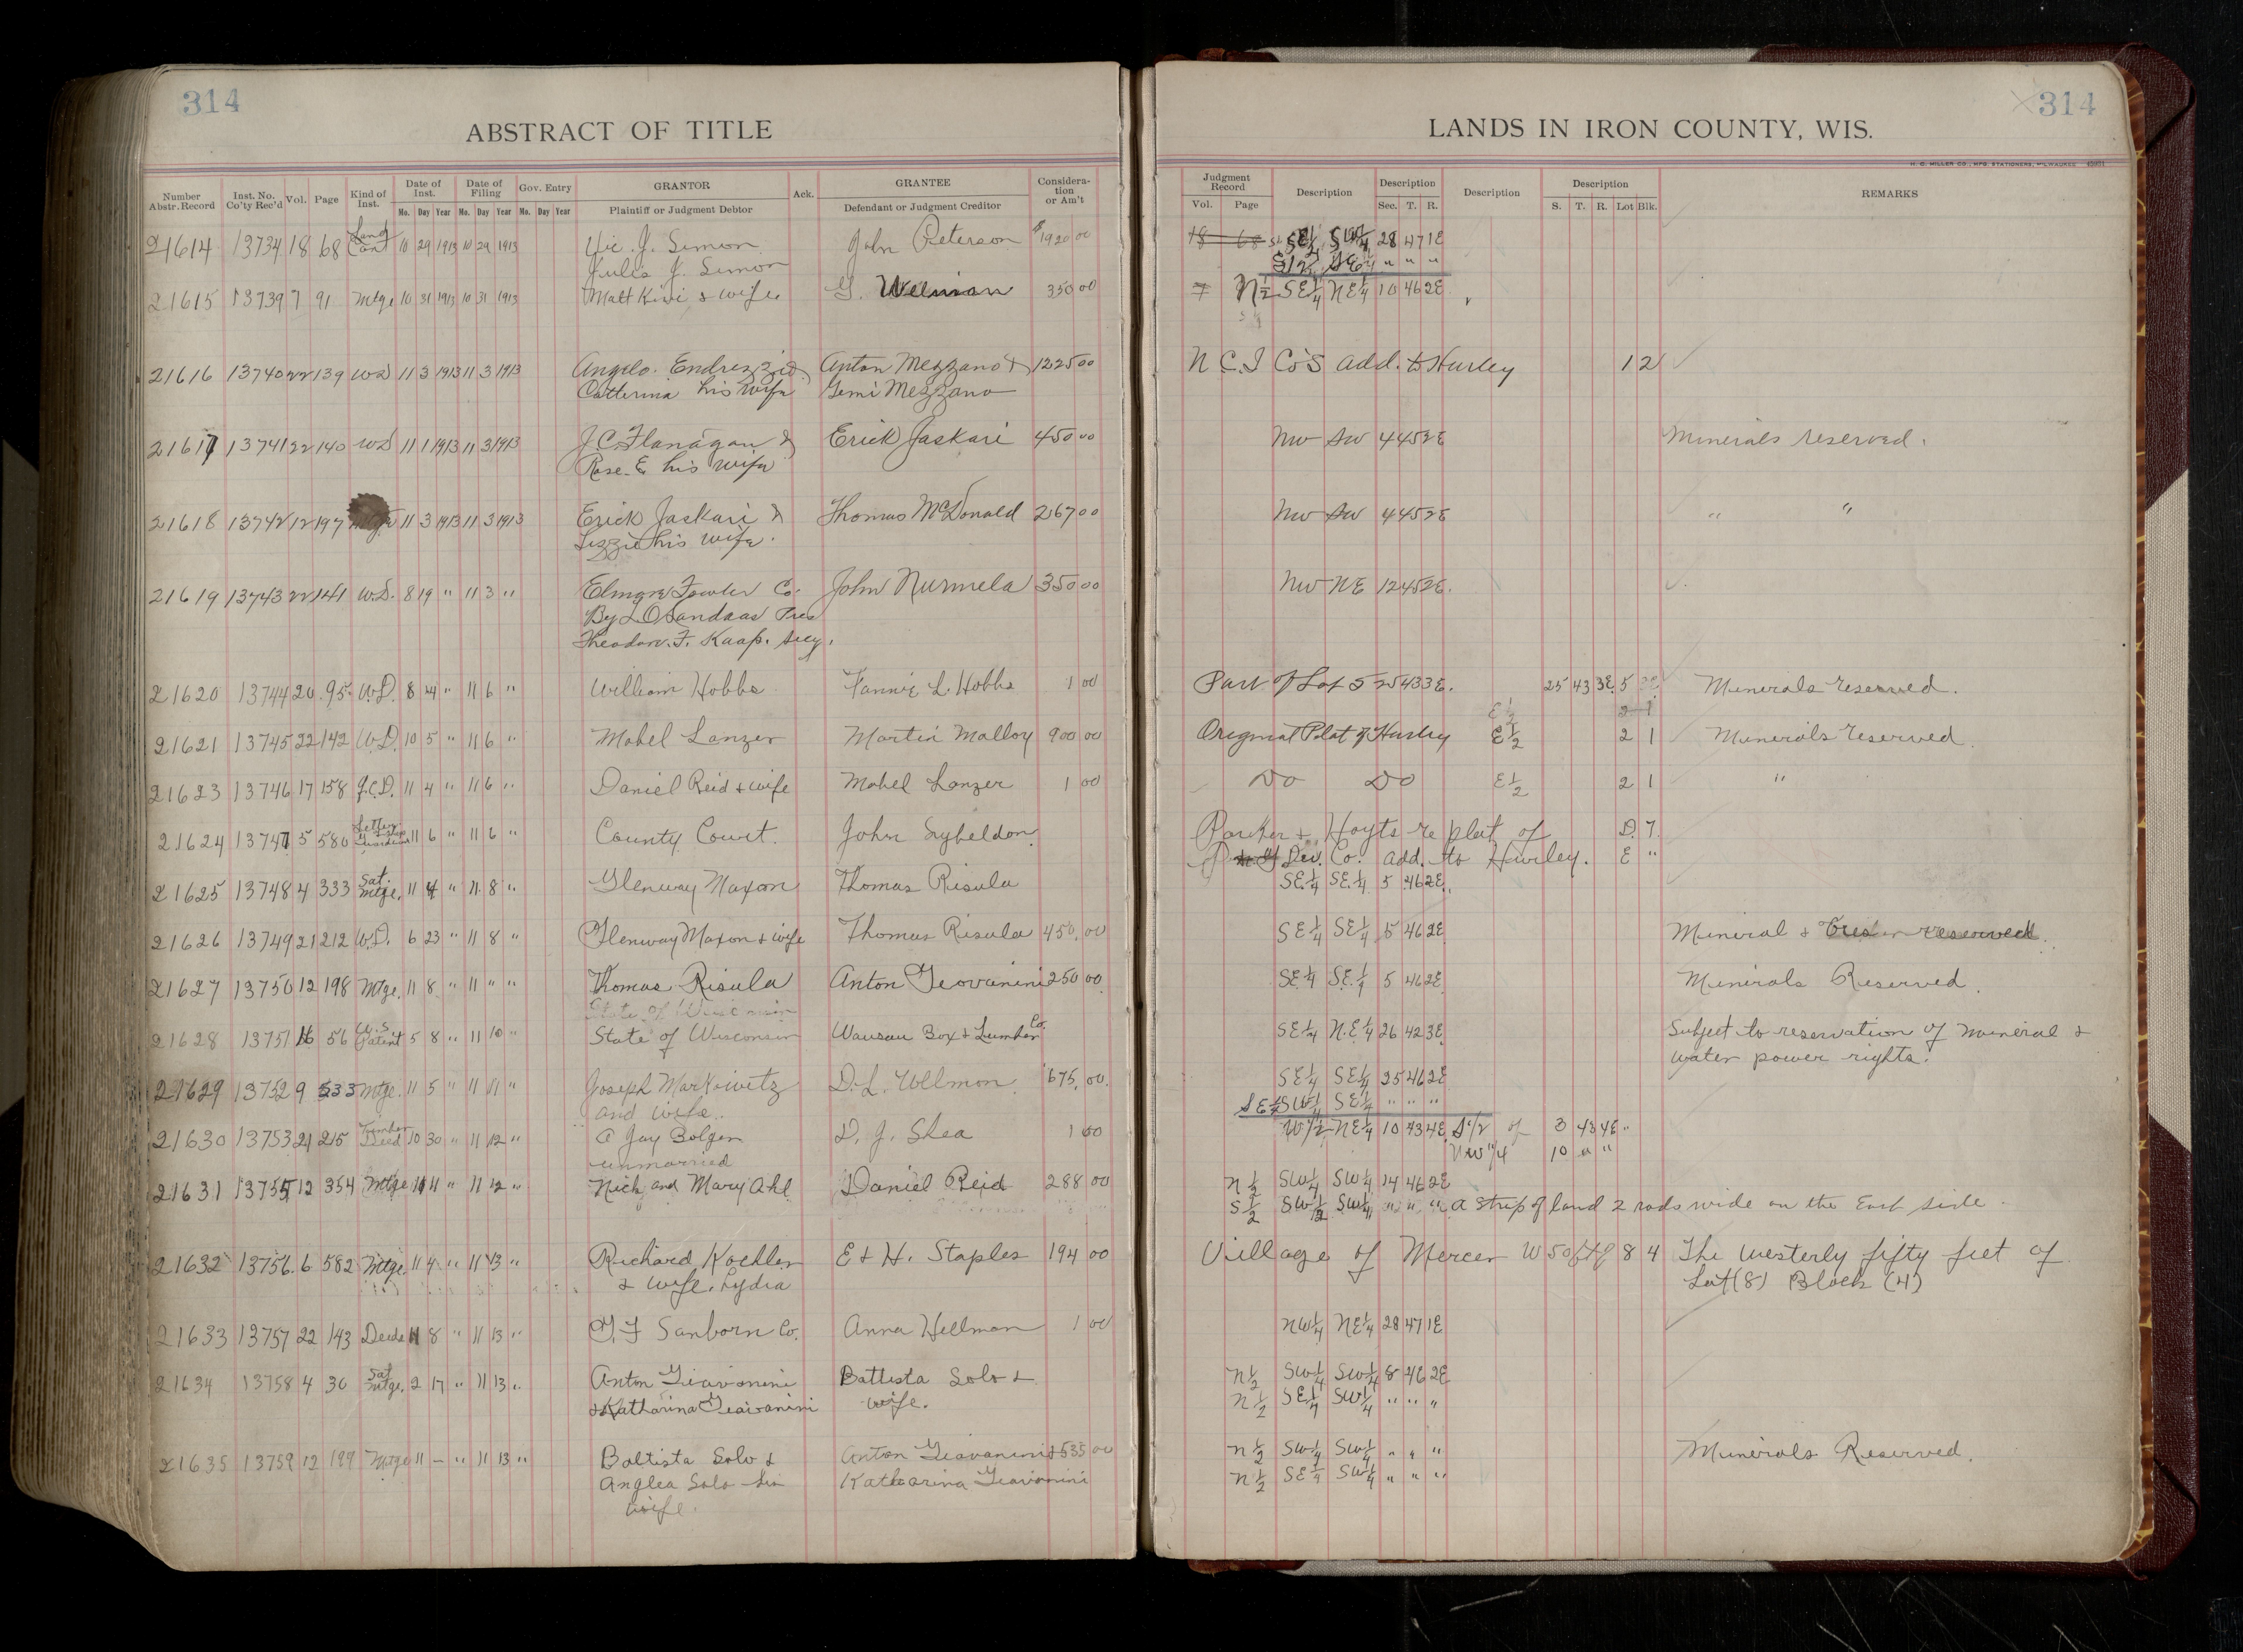 314
ABSTRACT OF TITLE
Number Abstr. Record Inst. No. Co'ty Rec'd Vol. Page Kind of Inst. Date of Inst. Mo. Day Year Date of Filing Mo. Day Year Gov. Entry Mo. Day Year GRANTOR Plaintiff or Judgment Debtor Ack. GRANTEE Defendant or Judgment Creditor Considera-tion or Am't
21614 13734 18 68 Land Con 10 29 1913 10 29 1913 Vic. J. Simon John Peterson $1920 00
Julis J. Simon
21615 13739 7 91 Mtge 10 31 1913 10 31 1913 Matt Kivi & wife G. 350 00
21616 13740 22 139 WD 11 3 1913 11 3 1913 Angelo Endrizzi & Anton Mezzano & 1225 00
Catterina his wife Gemi Mezzano
21617 13741 22 140 WD 11 1 1913 11 3 1913 J C Flanagan & Erick Jaskari 450 00
Rose E his wife
21618 13742 12 197 Mtge 11 3 1913 11 3 1913 Erick Jaskari & Thomas McDonald 267 00
Lizzie his wife.
21619 13743 22 141 W.D. 8 19 " 11 3 " Elmore Fowler Co. John Nurmela 350 00
By L O Sandaas Pres
Theodor. F. Kaap. Secy.
21620 13744 20 95 W.D. 8 4 " 11 6 " William Hobbs Fannie L. Hobbs 1 00
21621 13745 22 142 W.D. 10 5 " 11 6 " Mabel Lanzer Martin Malloy 900 00
21623 13746 17 158 Q.C.D. 11 4 " 11 6 " Daniel Reid & wife Mabel Lanzer 1 00
21624 13747 5 580 Letters Guardian 11 6 " 11 6 " County Court. John Sybeldon
21625 13748 4 333 Sat. Mtge. 11 4 " 11 8 " Glenway Maxon Thomas Risula
21626 13749 21 212 W.D. 6 23 " 11 8 " Glenway Maxon & wife Thomas Risula 450. 00
21627 13750 12 198 Mtge. 11 8 " 11 " " Thomas Risula Anton Geovanini 250 00
State of Wisconsin
21628 13751 16 56 Patent 5 8 " 11 10 " State of Wisconsin Wausau Box & Lumber Co.
21629 13752 9 533 Mtge. 11 5 " 11 11 " Joseph Markowitz D. L. Wellmon 675. 00
and wife.
21630 13753 21 215 Timber Deed 10 30 " 11 12 " A Jay Bolgen D. J. Shea 1 00
unmarried
21631 13755 12 354 Mtge 11 11 " 11 12 " Nick and Mary Ahl Daniel Reid 288 00
21632 13756 6 582 Mtge. 11 4 " 11 13 " Richard Koehler E & H. Staples 194 00
& wife, Lydia
21633 13757 22 143 Deeds 11 8 " 11 13 " G. F Sanborn Co. Anna Hellman 1 00
21634 13758 4 30 Sat Mtge. 2 17 " 11 13 " Anton Giavonini Battista Solo &
& Katharina Giavanini wife.
21635 13759 12 199 Mtge 11 — " 11 13 " Baltista Solo & Anton Giavanini & 535 00
Anglea Solo his Katharina Giavonini
wife.
314
LANDS IN IRON COUNTY, WIS.
H. C. MILLER CO., MFG. STATIONERS, MILWAUKEE
Judgment Record Vol. Page Description Description Sec. T. R. Description Description S. T. R. Lot Blk. REMARKS
18 68 SE 1/4 SW 1/4 28 47 1E
S 1/2 SE 1/4 " " "
7 N 1/2 SE 1/4 NE 1/4 10 46 2E
N C. I Co's Add. to Hurley 1 2
NW SW 4 45 2E Minerals reserved.
NW SW 4 45 2E " "
NW NE 12 45 2E.
Part of Lot 5 25 43 3E. 25 43 3E. 5 Minerals reserved.
E 1/2 2 1
Original Plat of Hurley E 1/2 2 1 Minerals reserved.
Do Do E 1/2 2 1 "
Parker & Hoyts re plat of D. 7.
Dev. Co. add. to Hurley. E "
SE. 1/4 SE. 1/4 5 46 2E.
SE 1/4 SE 1/4 5 46 2E Mineral & reserved.
SE 1/4 SE. 1/4 5 46 2E Minerals Reserved.
SE 1/4 N.E 1/4 26 42 3E Subject to reservation of mineral &
water power rights.
SE 1/4 SE 1/4 25 46 2E
SE 1/4 SW 1/4 SE 1/4 " " "
W 1/2 NE 1/4 10 43 4E S 1/2 of 3 43 4E "
NW 1/4 10 " "
N 1/2 SW 1/4 SW 1/4 14 46 2E
S 1/2 SW 1/4 SW 1/4 " " " a strip of land 2 rods wide on the East side.
Village of Mercer W 50 ft of 8 4 The westerly fifty feet of
Lot (8) Block (4)
NW 1/4 NE 1/4 28 47 1E
N 1/2 SW 1/4 SW 1/4 8 46 2E
N 1/2 SE 1/4 SW 1/4 " " "
N 1/2 SW 1/4 SW 1/4 " " " Minerals Reserved.
N 1/2 SE 1/4 SW 1/4 " " "